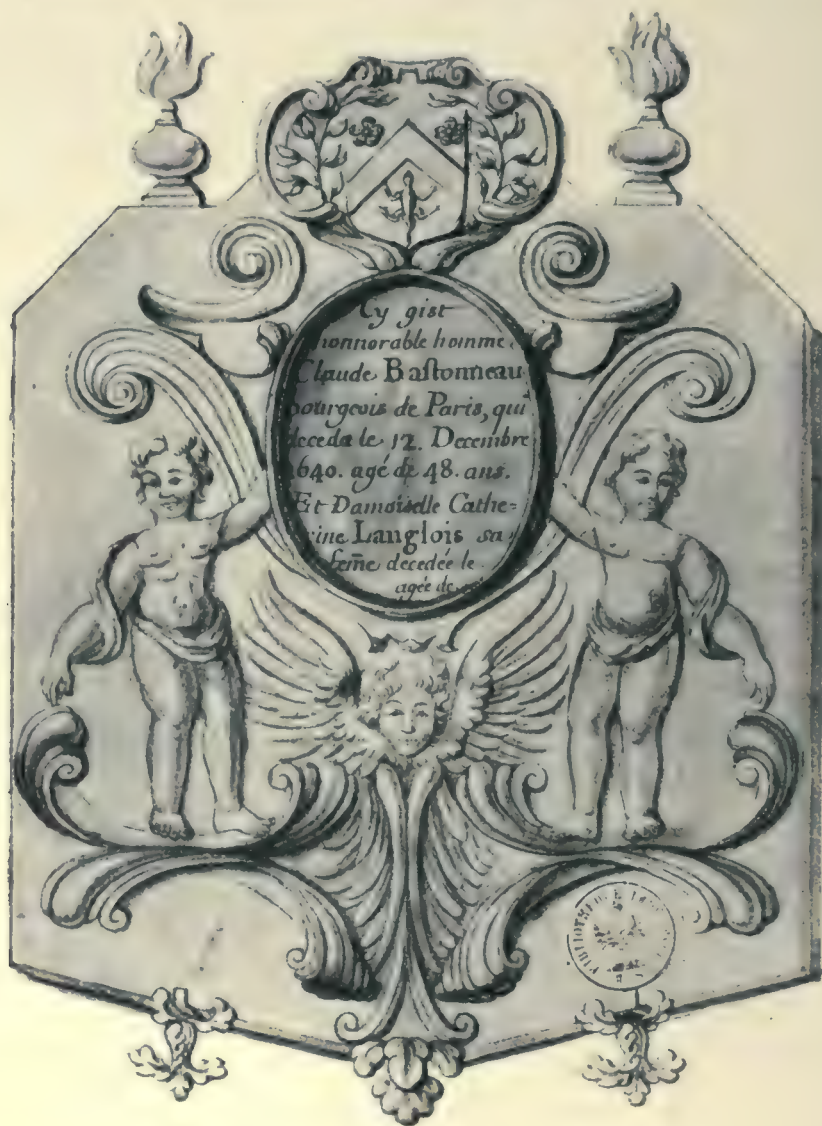 Cy gist
honnorable homme
Claude Bastonneau
bourgeois de Paris, qui
deceda le 12. Decembre
1640. agé de 48. ans.
Et Damoiselle Cathe=
rine Langlois sa
fem̃e decedée le
agée de